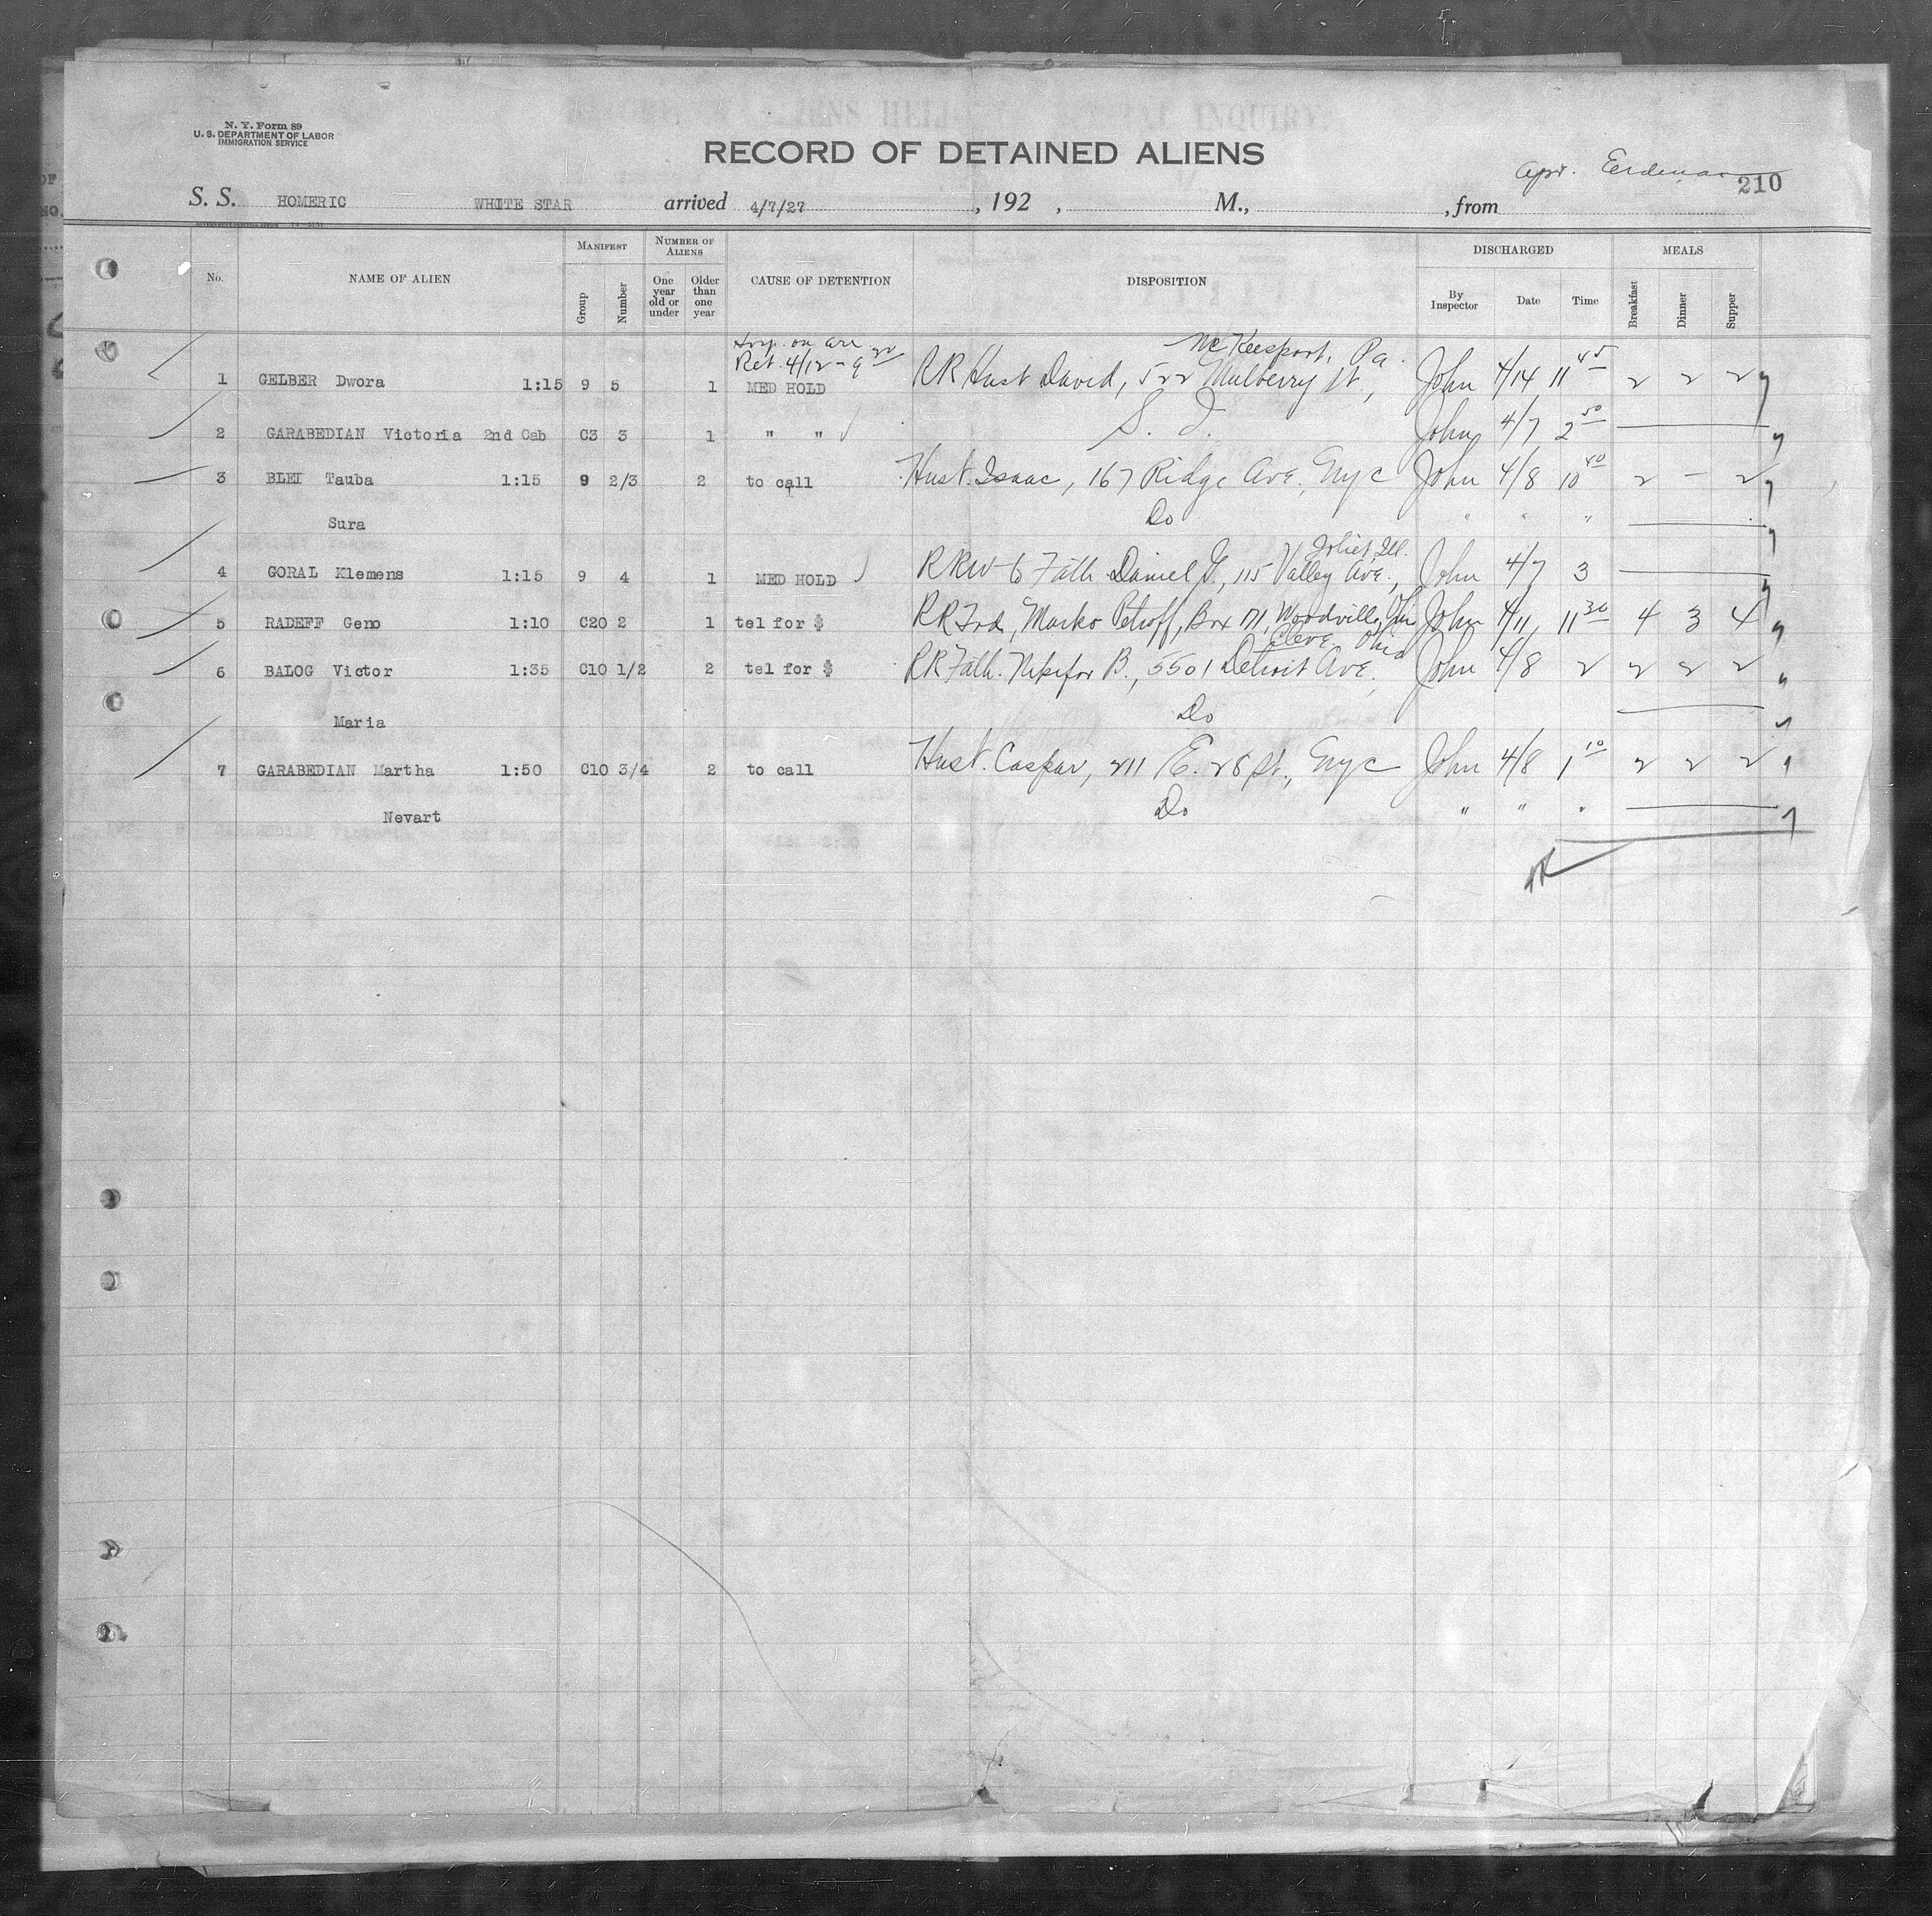 N. Y. Form 89
U. S. DEPARTMENT OF LABOR
IMMIGRATION SERVICE
RECORD OF DETAINED ALIENS
210
S. S. HOMERIC WHITE STAR arrived 4/7/27 , 192 , M., , from
No. NAME OF ALIEN MANIFEST NUMBER OF ALIENS CAUSE OF DETENTION DISPOSITION DISCHARGED MEALS
Group Number One year old or under Older than one year By Inspector Date Time Breakfast Dinner Supper
on arr
Ret. 4/12 - 9
McKeesport, Pa.
1 GELBER Dwora 1:15 9 5 1 MED HOLD RR Husb David, 522 Mulberry St, John 4/14 11 45 2 2 2
2 GARABEDIAN Victoria 2nd Cab C3 3 1 " " S. I. John 4/7 2 50
3 BLEI Tauba 1:15 9 2/3 2 to call Husb. Isaac, 167 Ridge Ave., Nyc John 4/8 10 40 2 - 2
Sura Do " " "
Joliet, Ill.
4 GORAL Klemens 1:15 9 4 1 MED HOLD RRW to Fath Daniel G, 115 Valley Ave., John 4/7 3
5 RADEFF Geno 1:10 C20 2 1 tel for $ RR Frd, Marko Petroff, Box 171, Woodville, John 4/11 11 30 4 3 4
Cleve, Ohio
6 BALOG Victor 1:35 C10 1/2 2 tel for $ RR Fath. Nikifor B., 5501 Detroit Ave. John 4/8 2 2 2 2
Maria Do
7 GARABEDIAN Martha 1:50 C10 3/4 2 to call Husb. Caspar, 211 E. 28 St., Nyc John 4/8 1 10 2 2 2
Nevart Do " " "